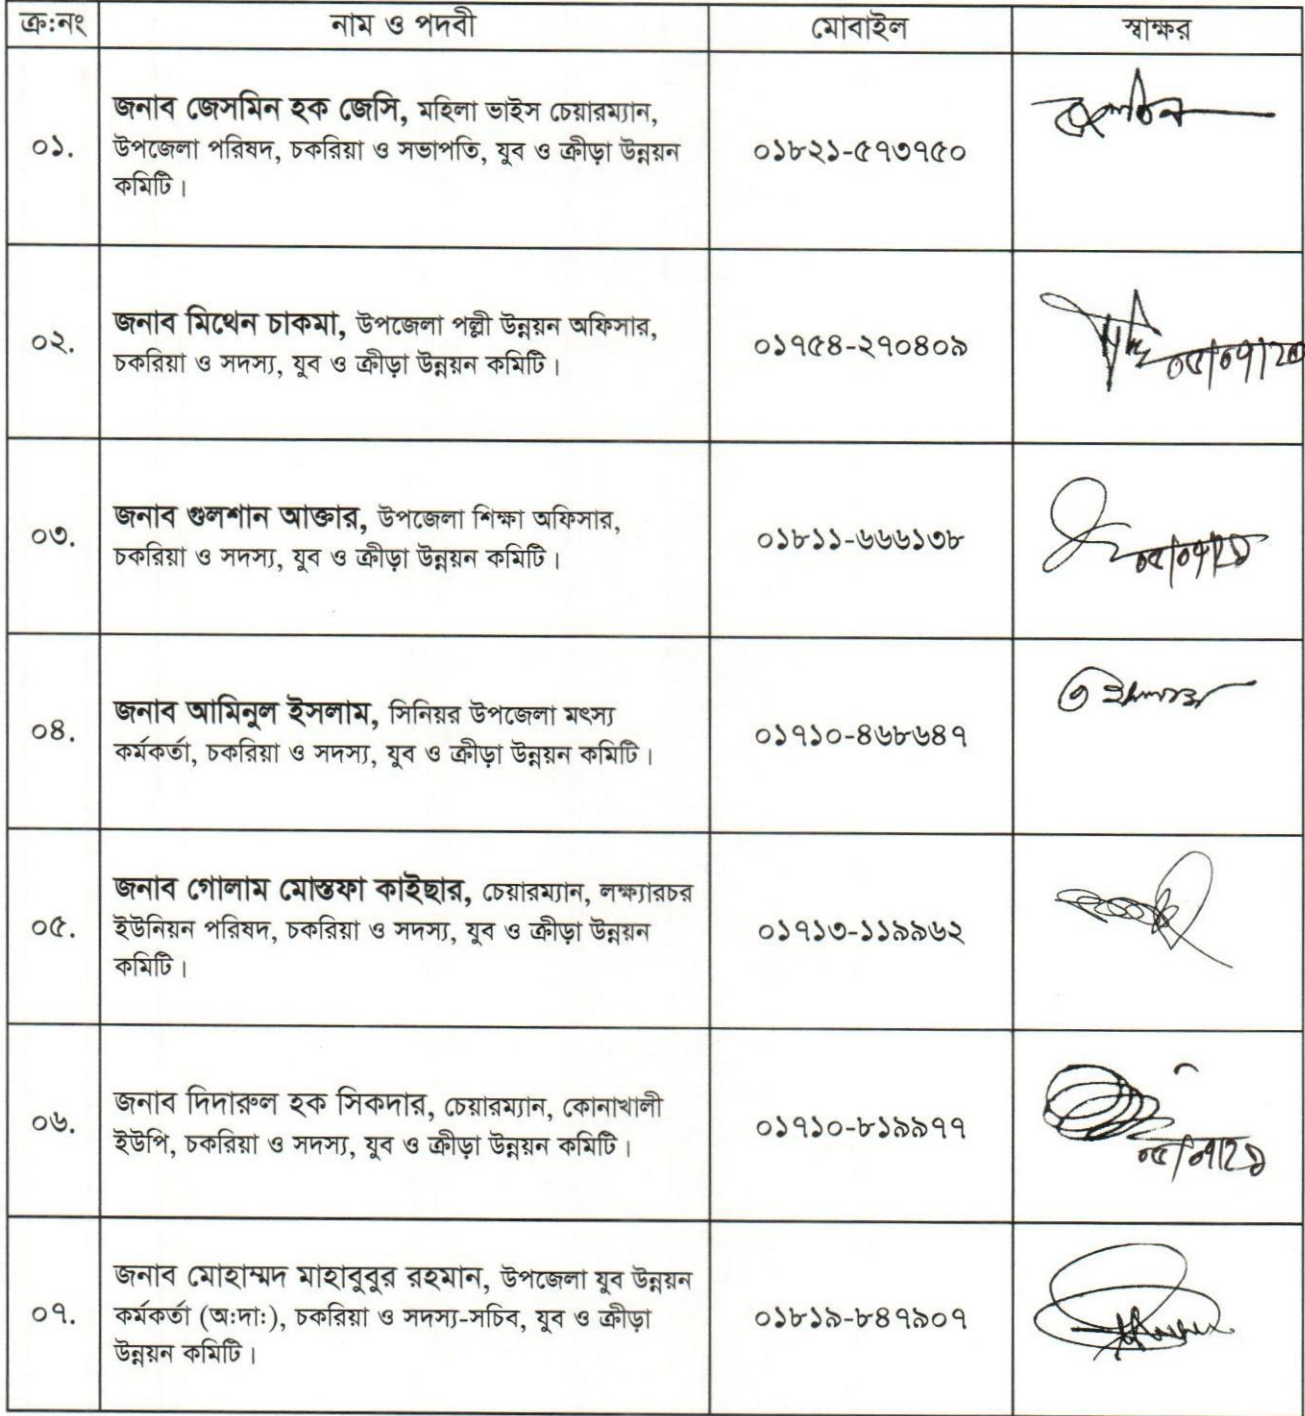 ক্র:নং নাম ও পদবী মোবাইল স্বাক্ষর
০১.
জনাব জেসমিন হক জেসি, মহিলা ভাইস চেয়ারম্যান,
উপজেলা পরিষদ, চকরিয়া ও সভাপতি, যুব ও ক্রীড়া উন্নয়ন
কমিটি।
০১৮২১-৫৭৩৭৫০
০২.
জনাব মিথেন চাকমা, উপজেলা পল্লী উন্নয়ন অফিসার,
চকরিয়া ও সদস্য, যুব ও ক্রীড়া উন্নয়ন কমিটি।
০১৭৫৪-২৭০৪০৯
০৩.
জনাব গুলশান আক্তার, উপজেলা শিক্ষা অফিসার,
চকরিয়া ও সদস্য, যুব ও ক্রীড়া উন্নয়ন কমিটি।
০১৮১১-৬৬৬১৩৮
০৪.
জনাব আমিনুল ইসলাম, সিনিয়র উপজেলা মৎস্য
কর্মকর্তা, চকরিয়া ও সদস্য, যুব ও ক্রীড়া উন্নয়ন কমিটি।
০১৭১০-৪৬৮৬৪৭
০৫.
জনাব গোলাম মোস্তফা কাইছার, চেয়ারম্যান, লক্ষ্যারচর
ইউনিয়ন পরিষদ, চকরিয়া ও সদস্য, যুব ও ক্রীড়া উন্নয়ন
কমিটি।
০১৭১৩-১১৯৯৬২
০৬.
জনাব দিদারুল হক সিকদার, চেয়ারম্যান, কোনাখালী
ইউপি, চকরিয়া ও সদস্য, যুব ও ক্রীড়া উন্নয়ন কমিটি।
০১৭১০-৮১৯৯৭৭
০৭.
জনাব মোহাম্মদ মাহাবুবুর রহমান, উপজেলা যুব উন্নয়ন
কর্মকর্তা (অ:দা:), চকরিয়া ও সদস্য-সচিব, যুব ও ক্রীড়া
উন্নয়ন কমিটি।
০১৮১৯-৮৪৭৯০৭